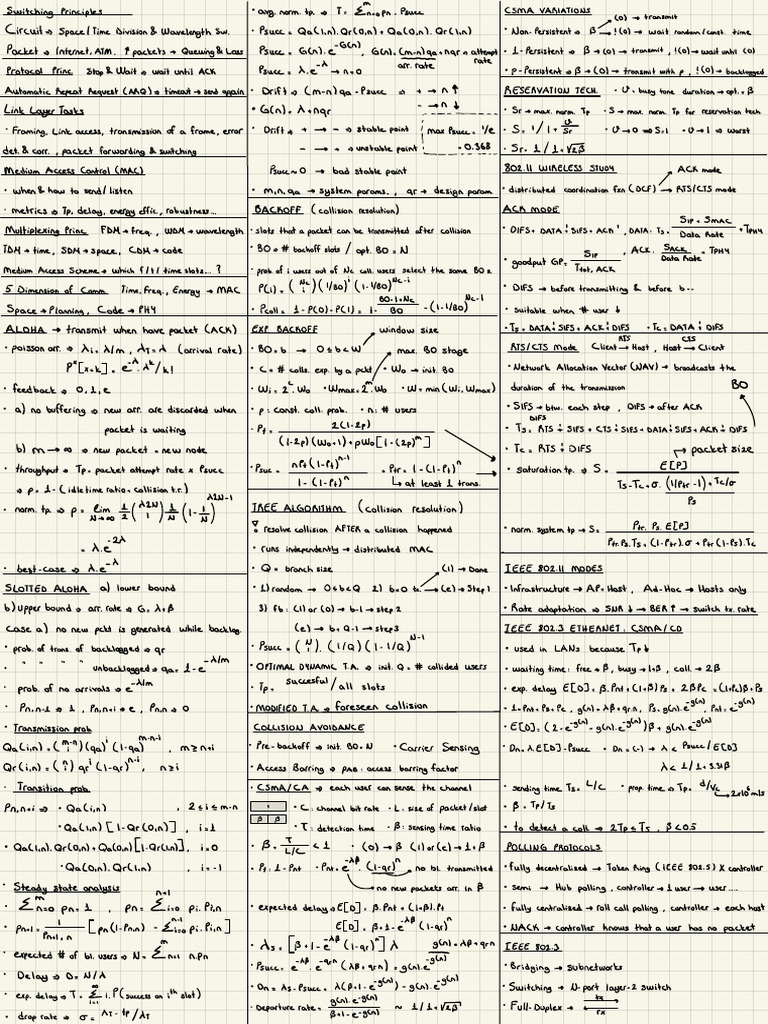 Switching Principles
Circuit → Space/Time Division & Wavelength Sw.
Packet → Internet, ATM. ↑ packets → Queuing & Loss
Protocol Princ Stop & Wait → wait until ACK
Automatic Repeat Request (ARQ) → timeout → send again
Link Layer Tasks
· Framing, Link access, transmission of a frame, error
det. & corr., packet forwarding & switching
Medium Access Control (MAC)
· when & how to send/listen
· metrics → Tp, delay, energy effic, robustness...
Multiplexing Princ FDM → freq., WDM → wavelength
TDM → time, SDM → space, CDM → code
Medium Access Scheme → which f/t/ time slots... ?
5 Dimension of Comm Time, Freq., Energy → MAC
Space → Planning, Code → PHY
ALOHA → transmit when have packet (ACK)
· poisson arr. → λi = λ/m, λT = λ (arrival rate)
P^x[x=k] = e^-λ · λ^k/k!
· feedback → 0, 1, e
· a) no buffering → new arr. are discarded when
packet is waiting
b) m → ∞ → new packet = new node
· throughput → Tp = packet attempt rate x Psucc
→ ρ = 1 - (idle time ratio + collision t.r.)
· norm. tp → ρ = lim N→∞ 1/2 (λ2N 1) 1/N (1 - 1/N)^λ2N-1
= λ.e^-2λ
· best-case → λ.e^-λ
SLOTTED ALOHA a) lower bound
b) upper bound → arr. rate → G = λ + β
Case a) no new pckt is generated while backlog.
· prob. of trans. of backlogged → qr
· " " " unbacklogged → qa = 1 - e^-λ/m
· prob. of no arrivals → e^-λ/m
· Pn,n-1 → 1, Pn,n+1 → e, Pn,n → 0
· Transmission prob
Qa(i,n) = (m-n i) (qa)^i (1-qa)^m-n-i , m ≥ n+i
Qr(i,n) = (n i) qr^i (1-qr)^n-i , n ≥ i
· Transition prob
Pn,n+i → · Qa(i,n) , 2 ≤ i ≤ m-n
· Qa(1,n) [1 - Qr(0,n)] , i=1
· Qa(1,n).Qr(0,n) + Qa(0,n)[1-Qr(1,n)], i=0
· Qa(0,n).Qr(1,n) , i=-1
· Steady state analysis
· Σ^m n=0 pn = 1 , pn = Σ^n+1 i=0 pi. Pi,n
· pn+1 = 1/Pn+1,n [pn(1-Pn,n) - Σ^n-1 i=0 pi. Pi,n]
· expected # of bl. users → N = Σ^m n=1 n.pn
· Delay → D = N/λ
· exp. delay → T = Σ^∞ i=1 i.P(success on i^th slot)
· drop rate → σ = λT - tp / λT
· avg. norm. tp → T = Σ^m n=0 pn. Psucc
· Psucc = Qa(1,n).Qr(0,n) + Qa(0,n).Qr(1,n)
· Psucc = G(n).e^-G(n), G(n) = (m-n)qa + nqr → attempt
arr. rate rate
· Psucc = λ.e^-λ → n=0
· Drift → (m-n)qa - Psucc → + → n ↑
· G(n) = λ + nqr - → n ↓
· Drift → + → - → stable point
- → + → unstable point
max Psucc = 1/e
= 0.368
Psucc ≈ 0 → bad stable point
· m, n, qa → system params., qr → design param
BACKOFF (collision resolution)
· slots that a packet can be transmitted after collision
· BO = # backoff slots / opt. BO = N
· prob of i users out of Nc coll. users select the same BO =
P(i) = (Nc i) (1/BO)^i (1-1/BO)^Nc-i
· Pcoll = 1 - P(0) - P(1) = 1 - BO-1+Nc/BO · (1-1/BO)^Nc-1
EXP BACKOFF
window size
· BO = b → 0 ≤ b < W
max. BO stage
· c = # colls. exp. by a pckt · W0 → init. BO
· Wi = 2^c. W0 · Wmax = 2^m. W0 · W = min(Wi, Wmax)
· p: const. coll. prob. · n: # users
· Pt = 2(1-2p) / (1-2p)(W0+1) + pW0[1-(2p)^m]
· Psuc = nPt(1-Pt)^n-1 / 1-(1-Pt)^n · Ptr = 1-(1-Pt)^n
↳ at least 1 trans.
TREE ALGORITHM (collision resolution)
! resolve collision AFTER a collision happened
· runs independently → distributed MAC
· Q = branch size
(1) → Done
· 1) random → 0 ≤ b < Q 2) b=0 tx. → (e) → Step 1
3) fb: (1) or (0) → b-1 → step 2
(e) → b + Q-1 → step 3
· Psucc = (N 1). (1/Q) (1-1/Q)^N-1
· OPTIMAL DYNAMIC T.A. → init. Q = # collided users
· Tp = succesful / all slots
· MODIFIED T.A. → foreseen collision
COLLISION AVOIDANCE
· Pre-backoff → init. BO = N · Carrier Sensing
· Access Barring → PAB: access barring factor
· CSMA/CA → each user can sense the channel
· C: channel bit rate · L: size of packet/slot
β β
· τ: detection time · β: sensing time ratio
· β = τ / L/C < 1 · (0) → β (1) or (e) → 1+β
· Pt = 1-Pnt · Pnt = e^-λβ. (1-qr)^n → no bl. transmitted
→ no new packets arr. in β
· expected delay → E[D] = β.Pnt + (1+β).Pt
E[D] = β + 1 - e^-λβ (1-qr)^n
· λs = [β + 1 - e^-λβ (1-qr)^n] λ g(n) = λβ + qrn
· Psucc = e^-λβ. e^-qrn (λβ + qrn) = g(n).e^-g(n)
· Dn = λs - Psucc = λ(β + 1 - e^-g(n)) - g(n).e^-g(n)
· Departure rate = g(n).e^-g(n) / β+1-e^-g(n) ~ 1/1+√2β
CSMA VARIATIONS
(0) → transmit
· Non-Persistent → β → !(0) → wait random/const. time
· 1-Persistent → β → (0) → transmit, !(0) → wait until (0)
· p-Persistent → β → (0) → transmit with p, !(0) → backlogged
RESERVATION TECH. · υ = busy tone duration → opt. = β
· Sr → max. norm. Tp · S → max. norm Tp for reservation tech
· S = 1/1 + υ/Sr · υ → 0 → S=1 · υ → 1 → worst
· Sr = 1/1+√2β
802.11 WIRELESS STUDY
ACK mode
· distributed coordination fxn (DCF) → RTS/CTS mode
ACK MODE
· DIFS + DATA + SIFS + ACK', DATA: Ts = SIP + SMAC / Data Rate + TPHY
· goodput GP = SIP / Ttot, ACK , ACK = SACK / Data Rate + TPHY
· DIFS → before transmitting & before b--
· suitable when # user ↓
· Ts = DATA + SIFS + ACK + DIFS · Tc = DATA + DIFS
RTS/CTS Mode Client RTS→ Host, Host CTS→ Client
· Network Allocation Vector (NAV) → broadcasts the
duration of the transmission BO
· SIFS → btw. each step, DIFS → after ACK
DIFS
· Ts = RTS + SIFS + CTS + SIFS + DATA + SIFS + ACK + DIFS
· Tc = RTS + DIFS
packet size
· saturation tp. → S = E[P] / Ts - Tc + σ. (1/Ptr - 1) + Tc/σ / Ps
· norm. system tp → S = Ptr. Ps. E[P] / Ptr.Ps.Ts + (1-Ptr).σ + Ptr(1-Ps).Tc
IEEE 802.11 MODES
· Infrastructure → AP + Host, Ad-Hoc → Hosts only
· Rate adaptation → SNR ↓ → BER ↑ → switch tx. rate
IEEE 802.3 ETHERNET: CSMA/CD
· used in LANs because Tp ↓
· waiting time: free → β, busy → 1+β, coll. → 2β
· exp. delay E[D] = β.Pnt + (1+β)Ps + 2βPc = (1+Pc)β + Ps
· 1 = Pnt + Ps + Pc, g(n) = λβ + qrn, Ps = g(n).e^-g(n), Pnt = e^-g(n)
· E[D] = (2 - e^-g(n) - g(n).e^-g(n))β + g(n).e^-g(n)
· Dn = λ.E[D] - Psucc · Dn = (-) → λ < Psucc/E[D]
λ < 1/1 + 3.31β
· sending time Ts = L/C · prop. time → Tp = d/Vc → 2x10^8 m/s
· β = Tp/Ts
· to detect a coll → 2Tp ≤ Ts, β < 0.5
POLLING PROTOCOLS
· fully decentralised → Token Ring (IEEE 802.5) X controller
· semi → Hub polling, controller → 1 user → user....
· fully centralised → roll call polling, controller → each host
· NACK → controller knows that a user has no packet
IEEE 802.3
· Bridging → subnetworks
· Switching → N-port layer-2 switch
· Full-Duplex → tx rx